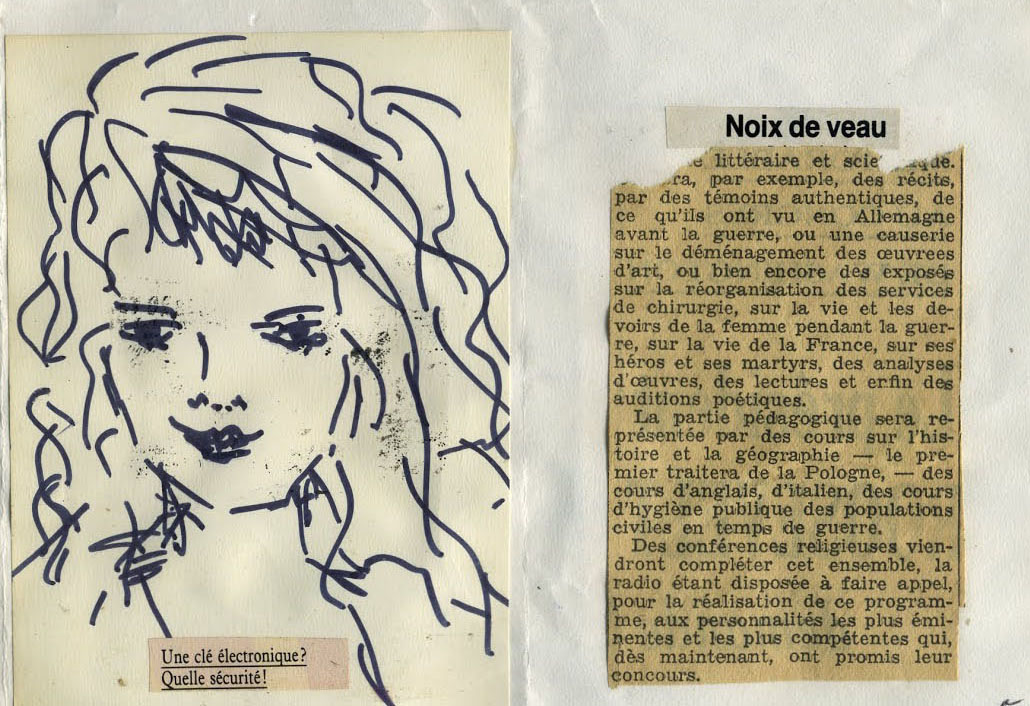 Une clé électronique?
Quelle sécurité!
Noix de veau
littéraire et scie
par exemple, des récits,
par des témoins authentiques, de
ce qu'ils ont vu en Allemagne
avant la guerre, ou une causerie
sur le déménagement des œuvrees
d'art, ou bien encore des exposés
sur la réorganisation des services
de chirurgie, sur la vie et les de-
voirs de la femme pendant la guer-
re, sur la vie de la France, sur ses
héros et ses martyrs, des analyses
d'œuvres, des lectures et enfin des
auditions poétiques.
La partie pédagogique sera re-
présentée par des cours sur l'his-
toire et la géographie — le pre-
mier traitera de la Pologne, — des
cours d'anglais, d'italien, des cours
d'hygiène publique des populations
civiles en temps de guerre.
Des conférences religieuses vien-
dront compléter cet ensemble, la
radio étant disposée à faire appel,
pour la réalisation de ce program-
me, aux personnalités les plus émi-
nentes et les plus compétentes qui,
dès maintenant, ont promis leur
concours.